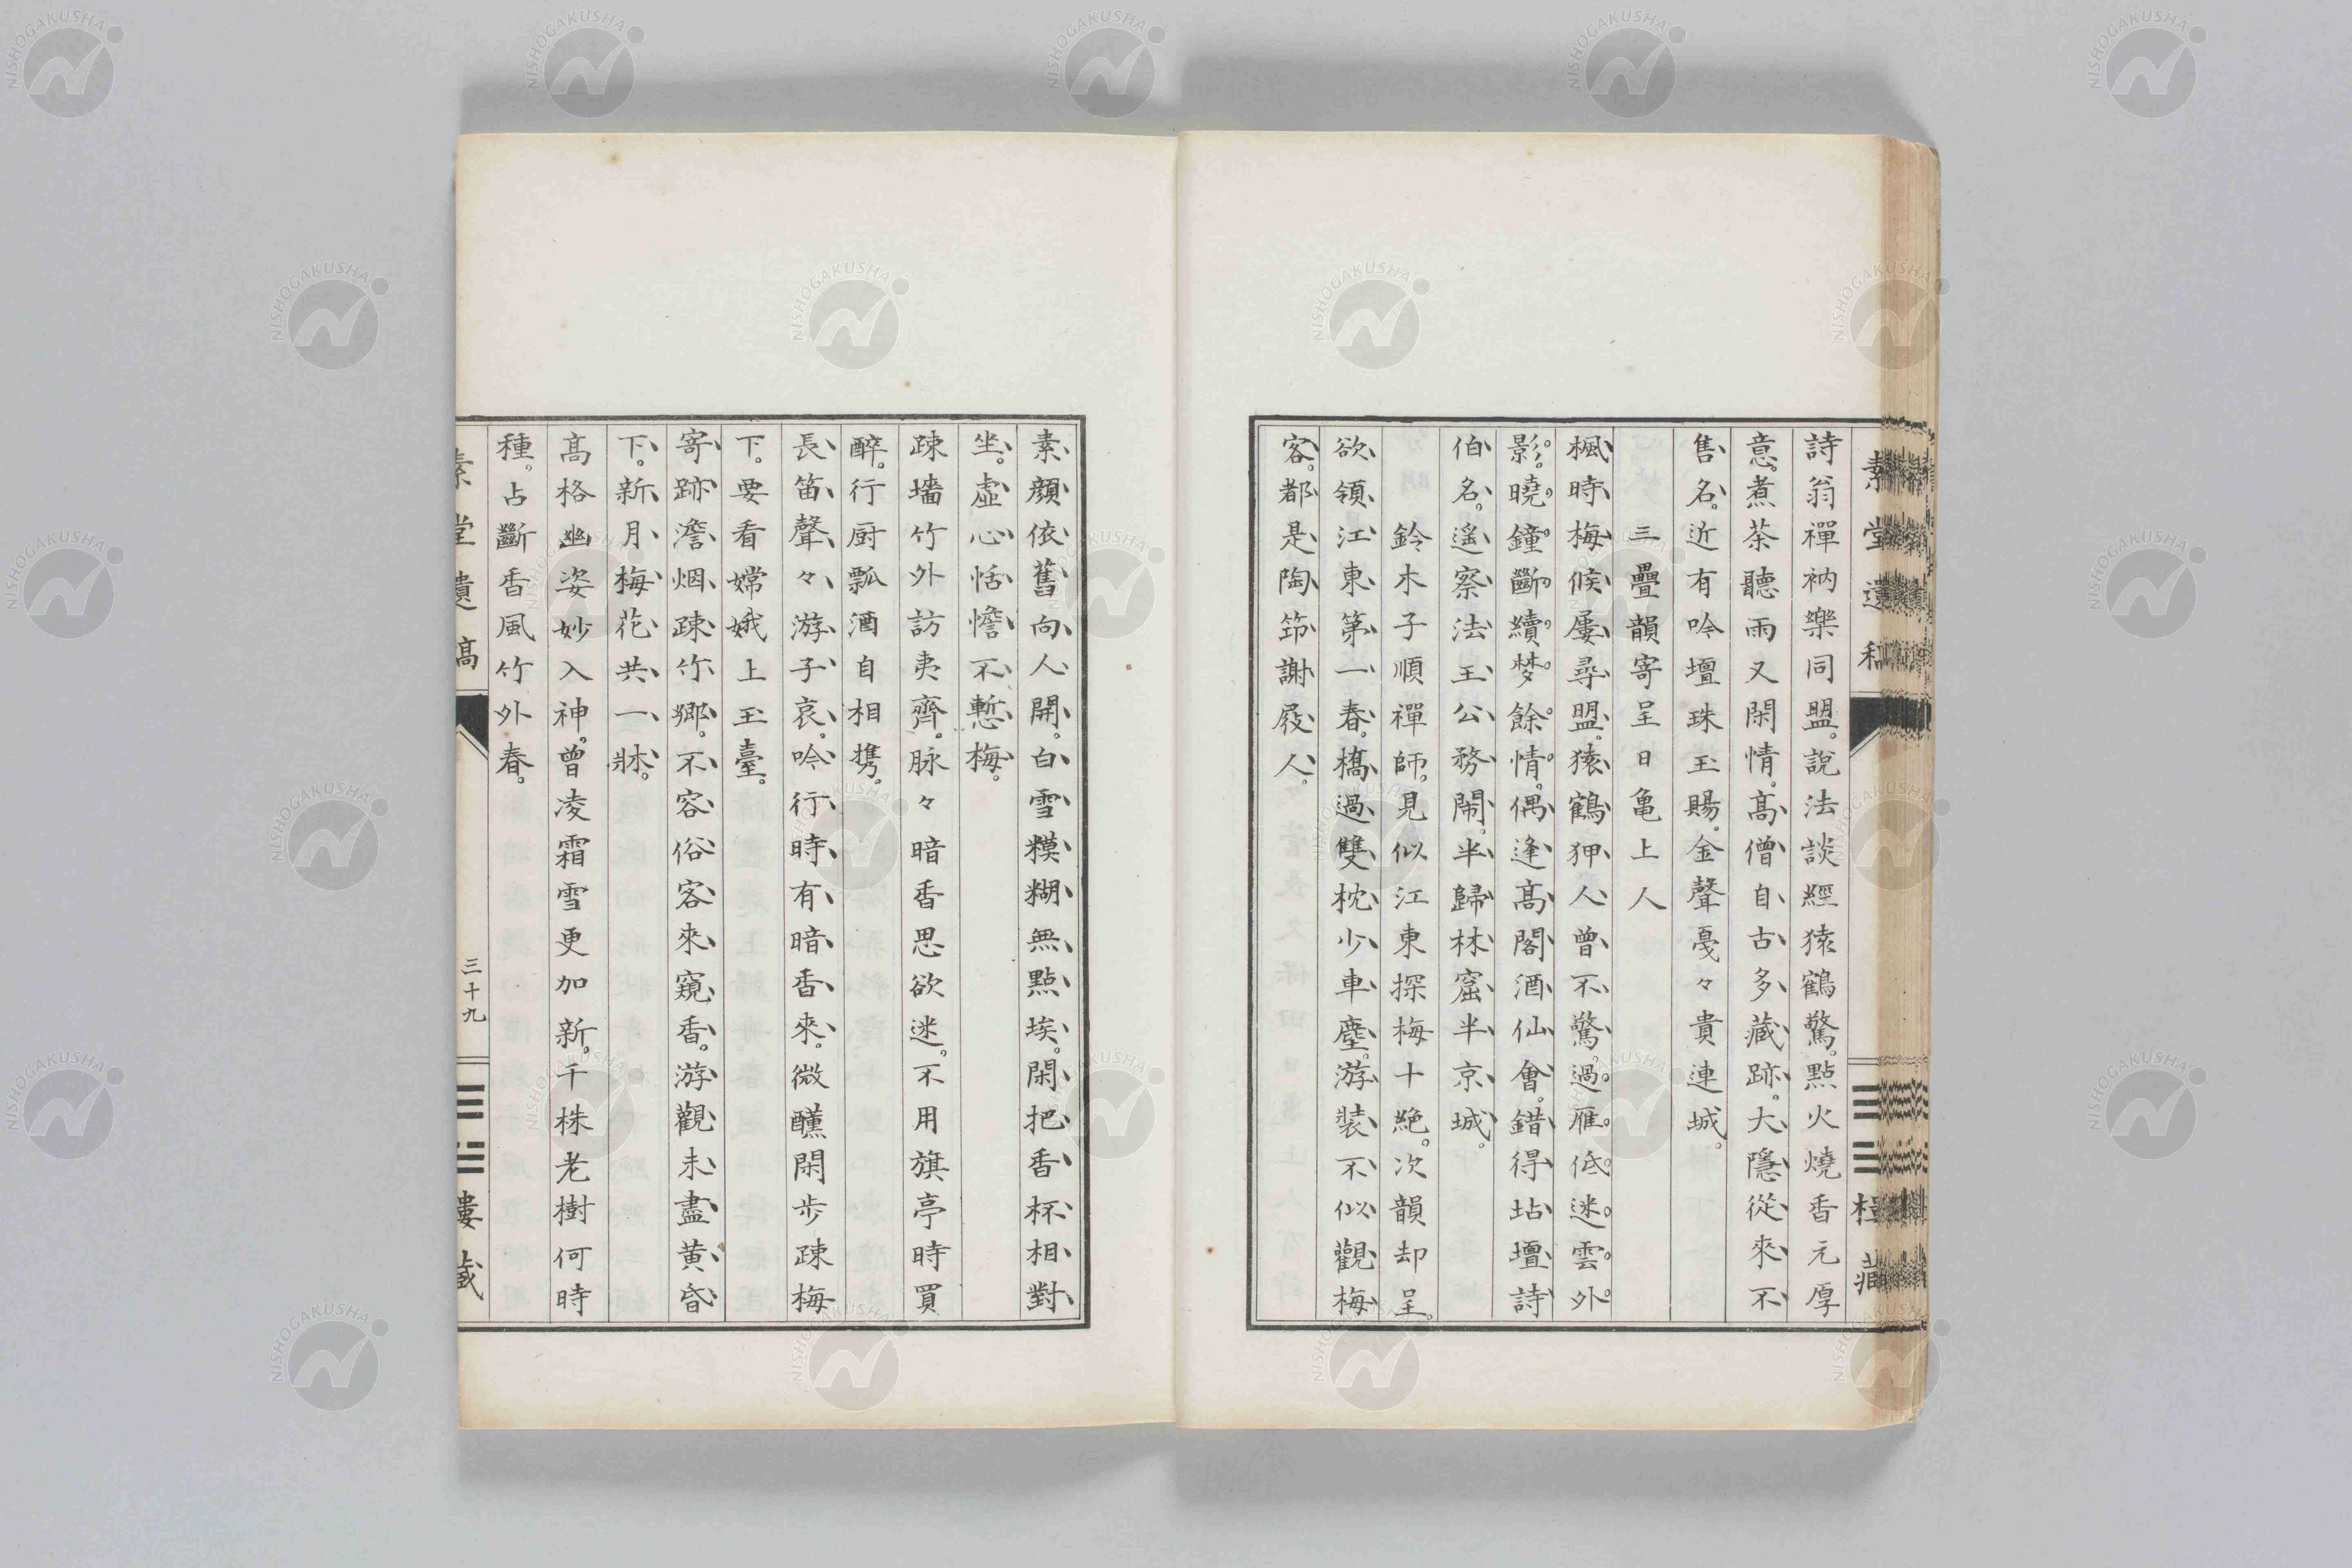 詩翁禪衲樂同盟。說法談經猿鶴驚。點火燒香元厚
意。煮茶聽雨又閑情。高僧自古多藏跡。大隱從來不
售名。近有吟壇珠玉賜。金聲戛々貴連城。
三疊韻寄呈日亀上人
楓時梅候屢尋盟。猿鶴狎人曾不驚。過雁低迷雲外
影。曉鐘斷續梦餘情。偶逢高閣酒仙會。錯得坫壇詩
伯名。遙察法王公務鬧。半歸林窟半京城。
鈴木子順禪師。見似江東探梅十絶。次韻却呈。
欲領江東第一春。橋過雙枕少車塵。游裝不似觀梅
客。都是陶笻謝屐人。
素顏依舊向人開。白雪糢糊無點埃。閑把香杯相對
坐。虛心恬憺不慙梅。
疎墻竹外訪夷齊。脉々暗香思欲迷。不用旗亭時買
醉。行厨瓢酒自相携。
長笛聲々游子哀。吟行時有暗香來。微醺閑步疎梅
下。要看嫦娥上玉臺。
寄跡澹烟疎竹鄉。不容俗客來窺香。游觀未盡黃昏
下。新月梅花共一牀。
高格幽姿妙入神。曾凌霜雪更加新。千株老樹何時
種。占斷香風竹外春。
素堂遺稿
三十九
樓藏
NISHOGAKUSHA